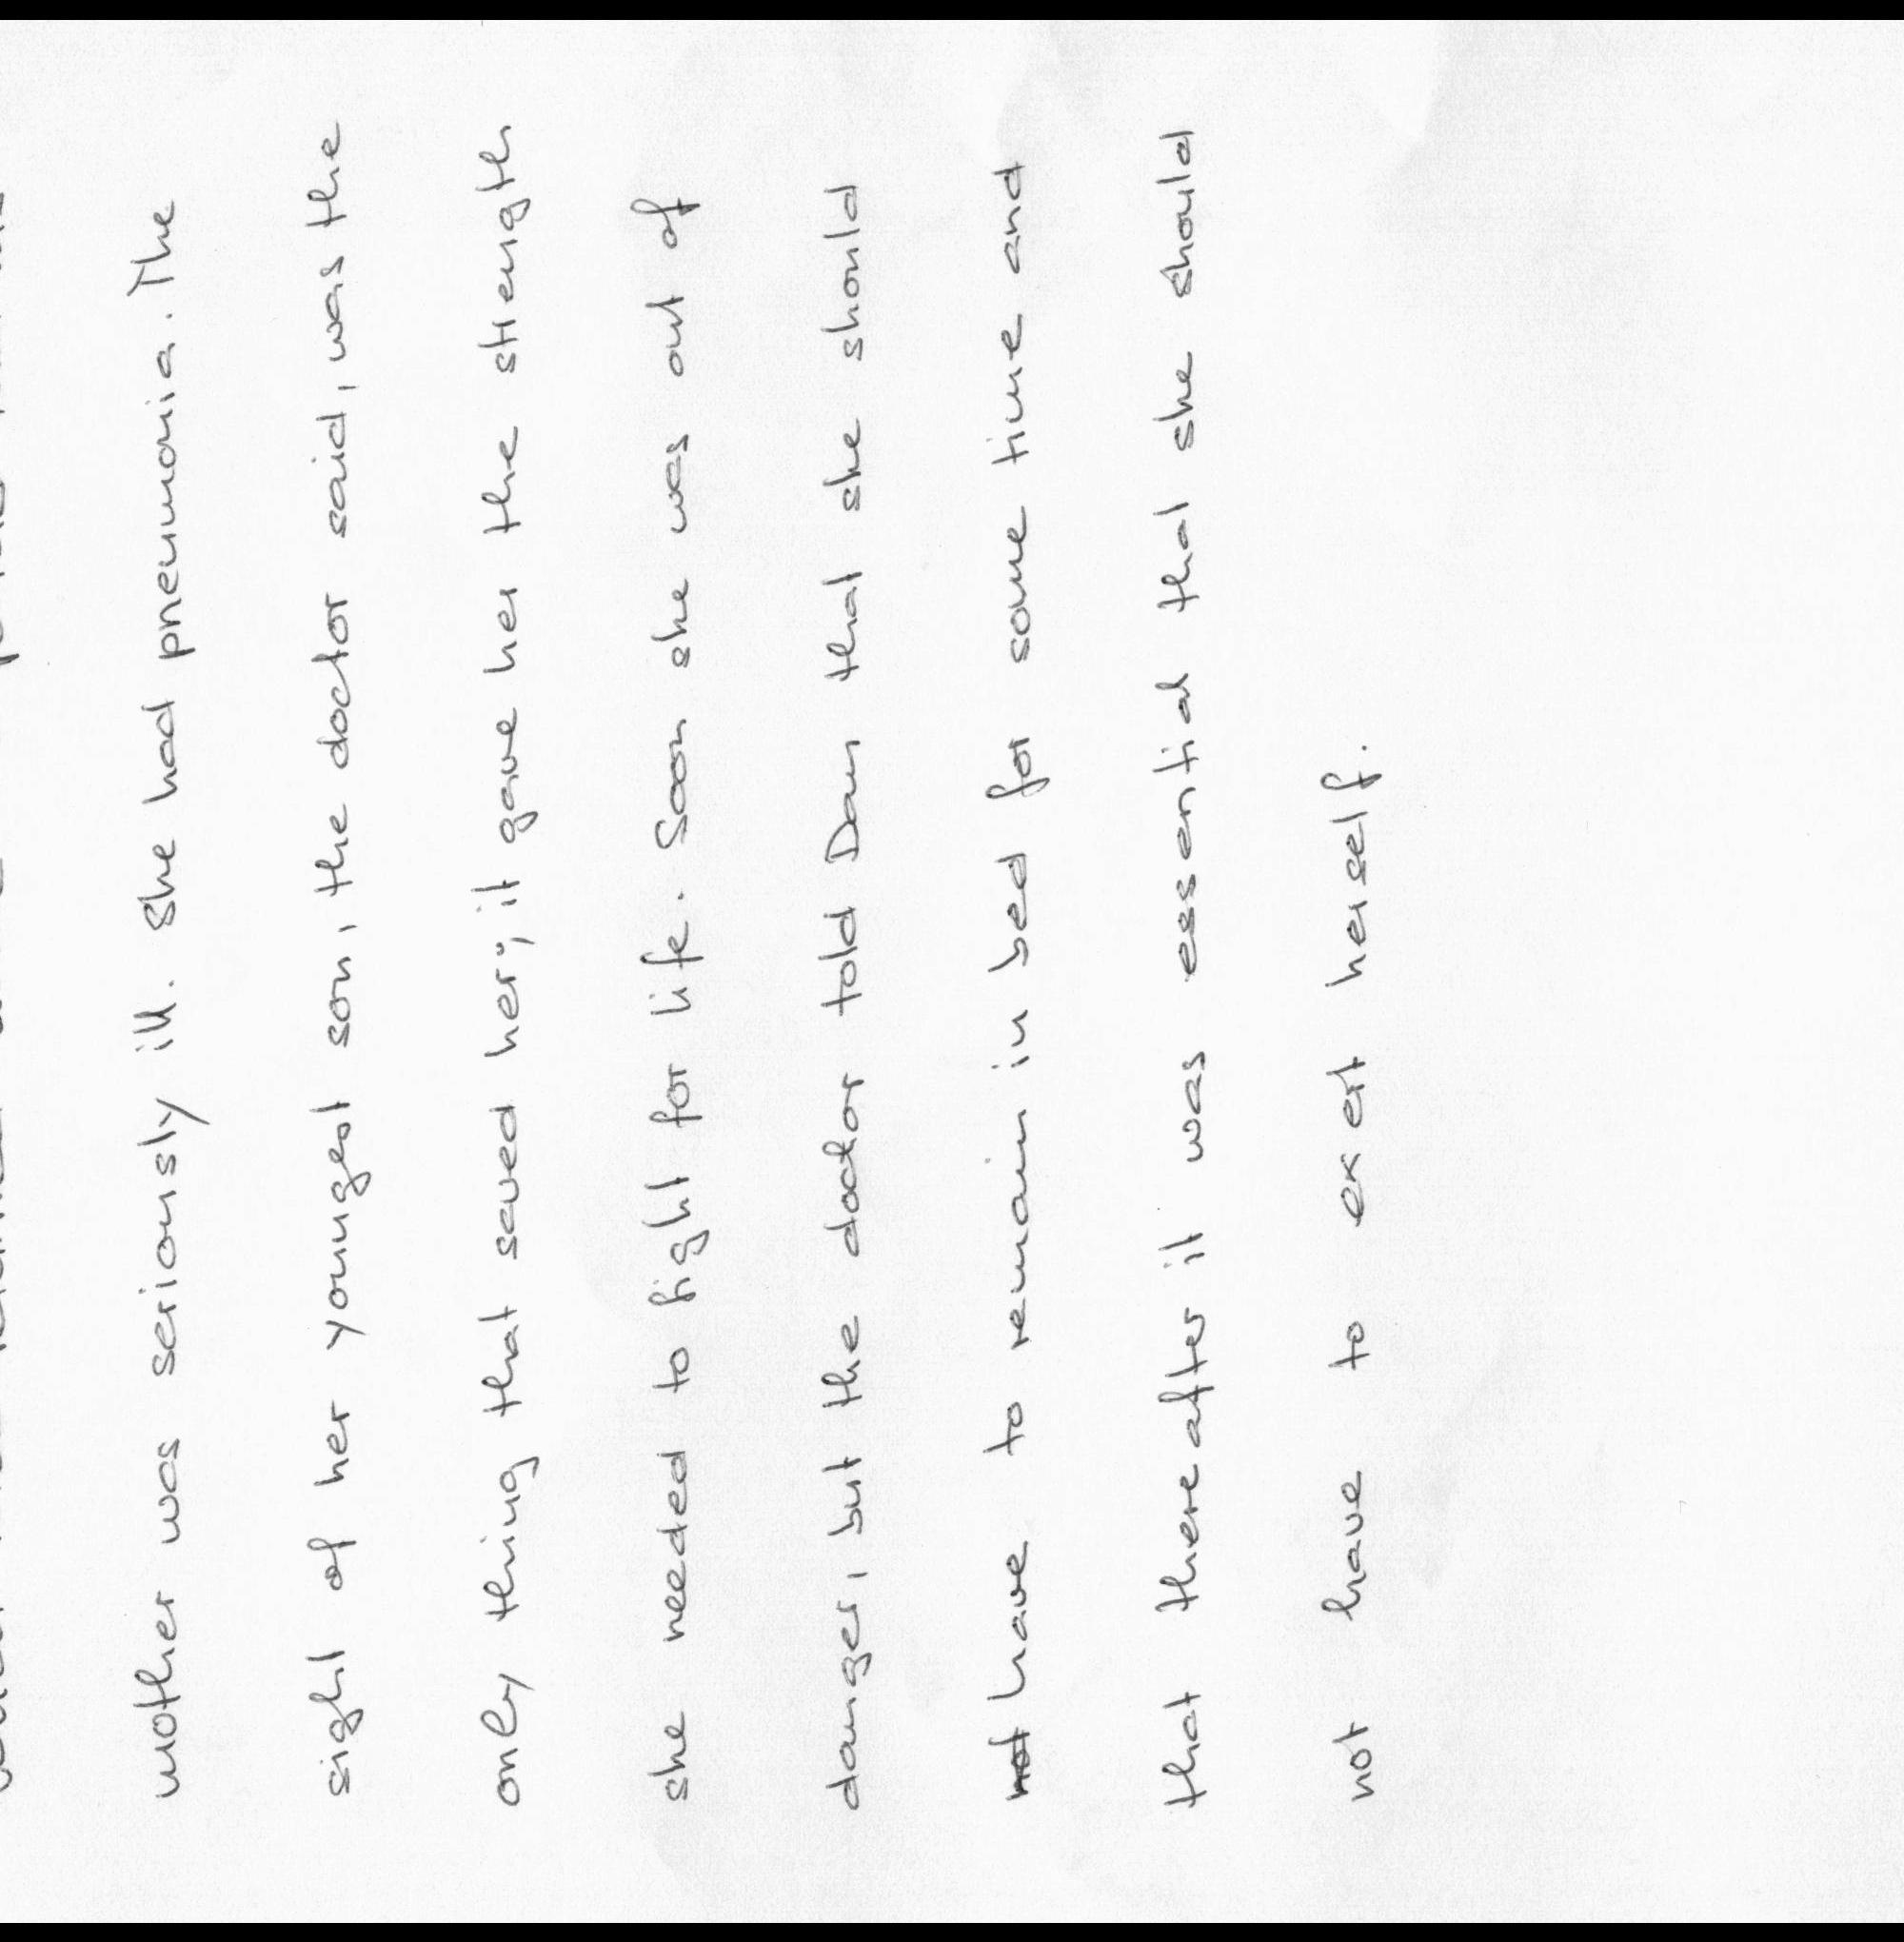 mother was seriously ill. She had pneumonia. The
sight of her youngest son, the doctor said, was the
only thing that saved her; it gave her the strength
she needed to fight for life. Soon she was out of
danger, but the doctor told Dan that she should
not have to remain in bed for some time and
that thereafter it was essential that she should
not have to exert herself.